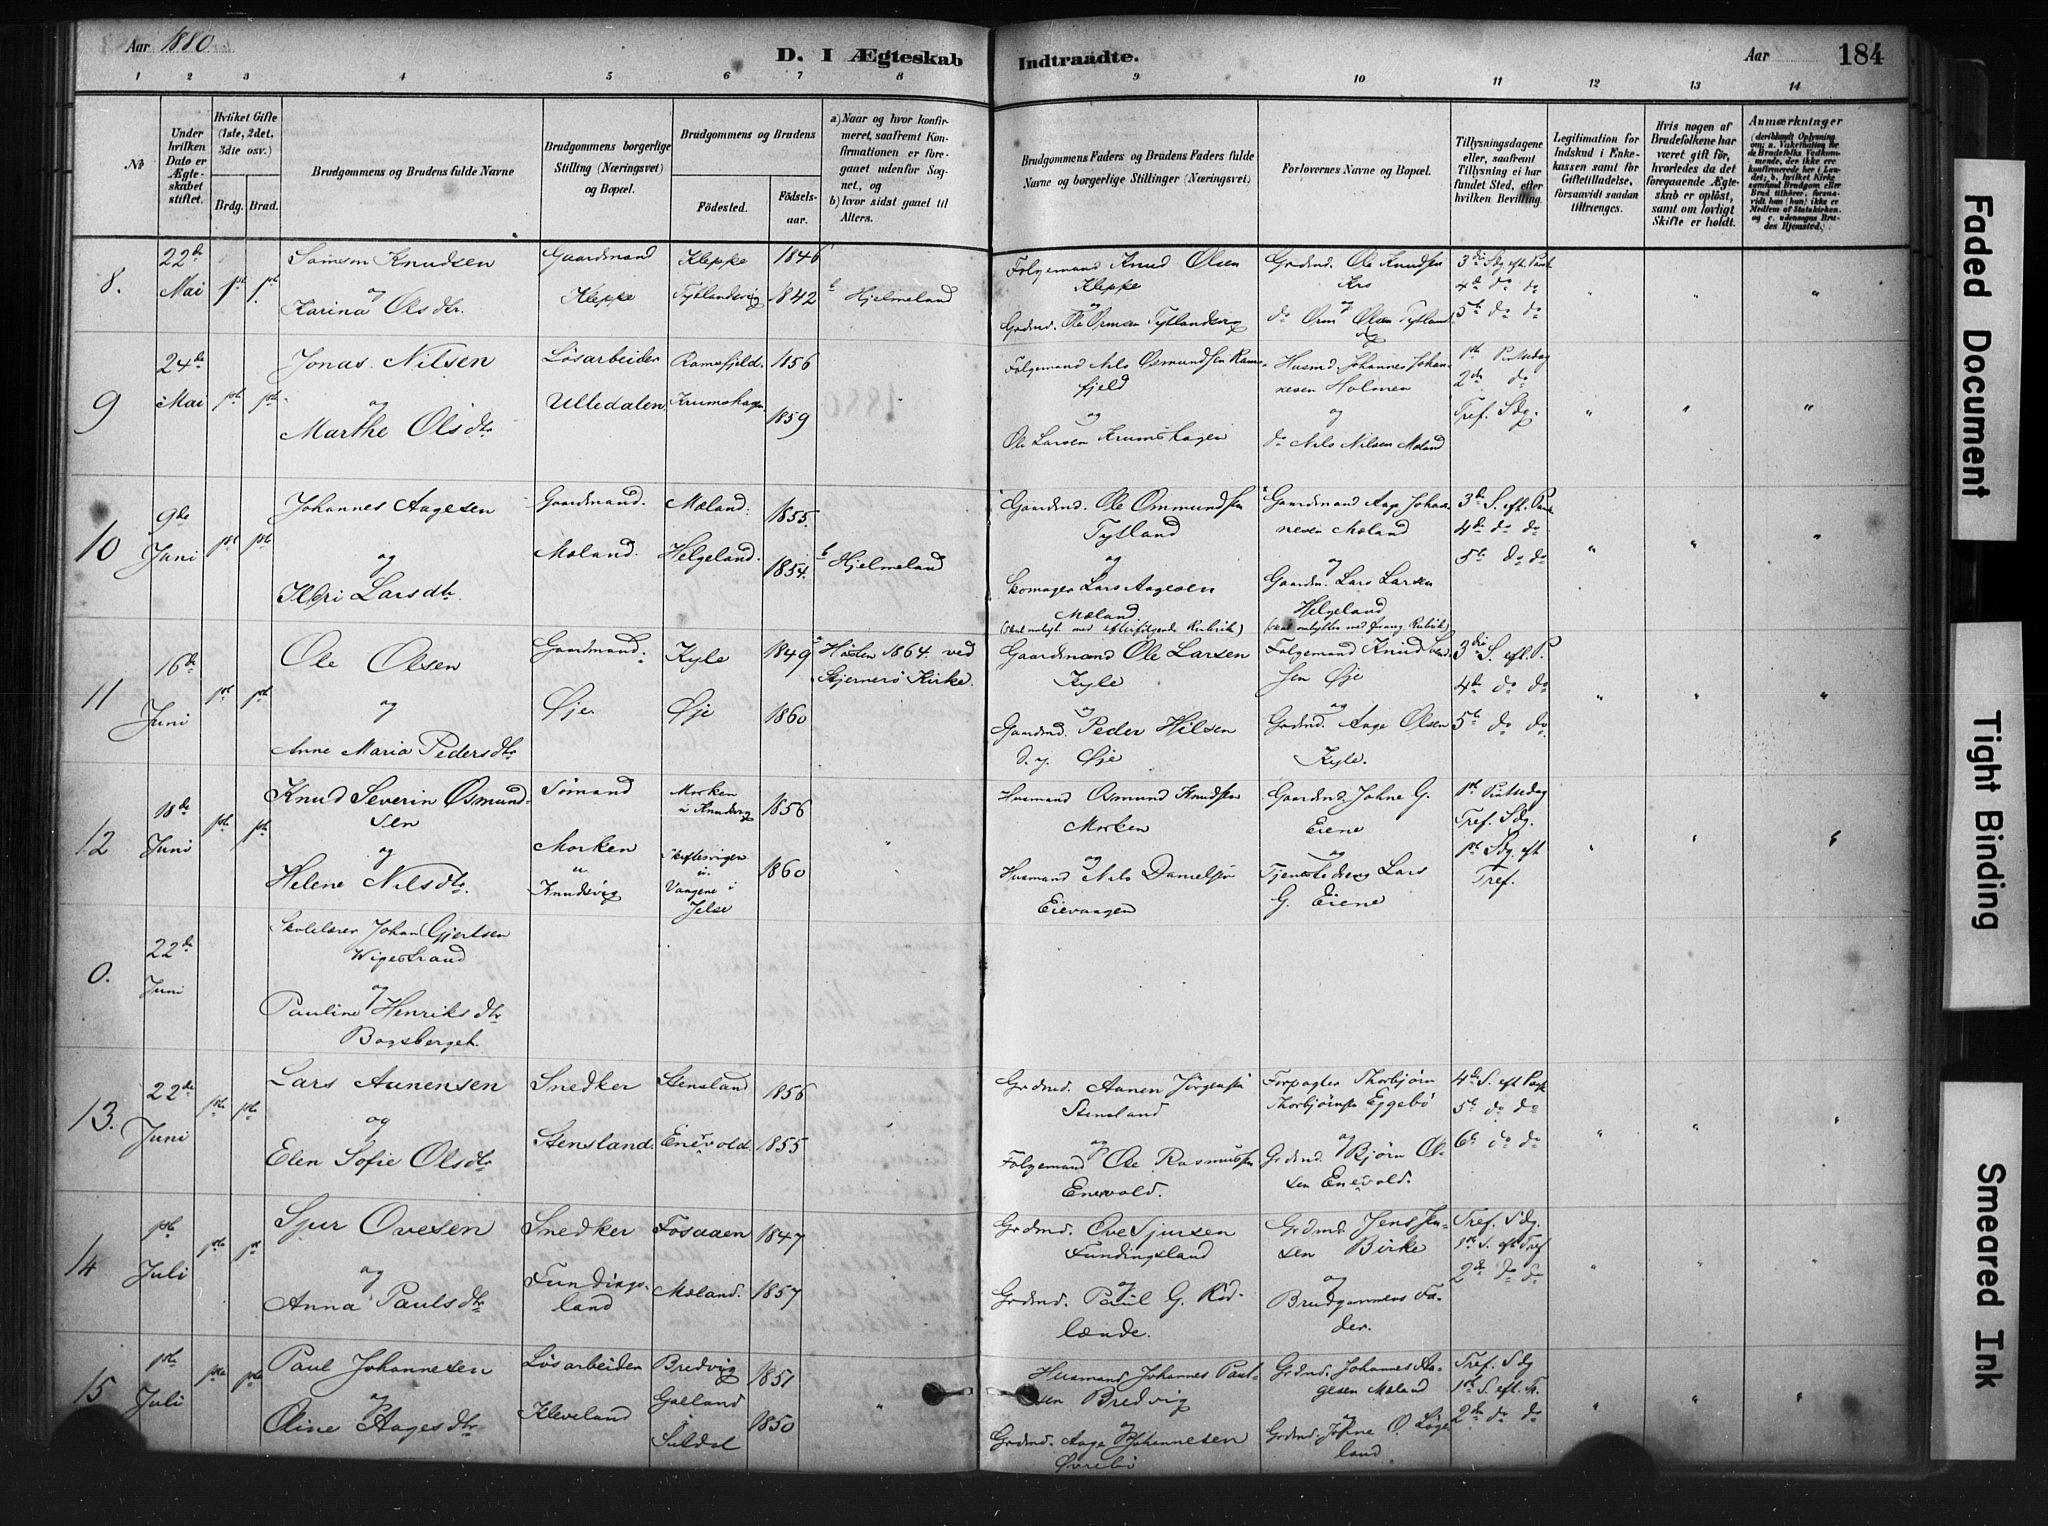 Aar 1880
D. I Ægteskab Indtraadte.
Aar
184
1 2 3 4 5 6 7 8 9 10 11 12 13 14
No
Under hvilken Dato er Ægteskabet stiftet.
Hvilket Gifte (1ste, 2det, 3die osv.)
Brdg. Brud.
Brudgommens og Brudens fulde Navne
Brudgommens borgerlige Stilling (Næringsvei) og Bopæl.
Brudgommens og Brudens
Fødested.
Fødselsaar.
a) Naar og hvor konfirmeret, saafremt Konfirmationen er foregaaet udenfor Sognet, og
b) hvor sidst gaaet til Alters.
Brudgommens Faders og Brudens Faders fulde Navne og borgerlige Stillinger (Næringsvei)
Forlovernes Navne og Bopæl.
Tillysningsdagene eller, saafremt Tillysning ei har fundet Sted, efter hvilken Bevilling.
Legitimation for Indskud i Enkekassen samt for Giftetilladelse, forsaavidt saadan tiltrænges.
Hvis nogen af Brudefolkene har været gift før, hvorledes da det foregaaende Ægteskab er opløst, samt om lovligt Skifte er holdt.
Anmærkninger
8.
22de Mai
1ste 1ste
Samson Knudsen
og
Karina Olsdtr.
Gaardmand
Kleppe
Kleppe
Tytlandsvig
1846
1842
b Hjelmeland
Folgemand Knud Olsen
Kleppe
og
Grdmd. Ole Ormsen Tytlandsvig
Grdmd. Ole Knudsen
Kro
og
do Orm Olsen Tytland
3die Sdg eft. Paask
4de do do
5te do do
9
24de Mai
1ste 1ste
Jonas Nilsen
og
Marthe Olsdtr
Løsarbeider
Ulledalen
Ramsfjeld.
Krumshagen.
1856
1859
Folgemand Nils Osmundsen Ramsfjeld
og
Ole Larsen Krumshagen
Husmd. Johannes Johannesen Holmen
og
do Nils Nilsen Mæland
1ste Pintsedag
2den do
Tref. Sdg.
10
9de Juni
1ste 1ste
Johannes Aagesen
og
Larsdtr.
Gaardmand.
Mæland.
Mæland.
Helgeland.
1855.
1854.
b Hjelmeland
Gaardmd. Ole Ommundsen
Tytland
og
Skomager Lars Aagesen
Mæland
(Skal ombyt. med efterfølgende Rubrik)
Gaardmand Aage Johannesen Mæland
og
Gaardm. Lars Larsen
Helgeland
(skal ombyttes med foreg. Rubrik)
3die S. eft. Paask
4de do do
5te do do
11
16de Juni
1ste 1ste
Ole Olsen
og
Anne Maria Pedersdtr
Gaardmand.
Øje
Kyle
Øje
1849
1860
a Høsten 1864. ved
Skjernerø Kirke.
Gaardmand Ole Larsen
Kyle
og
Gaardmd. Peder Hilsen
d. y. Øje
Folgemand Knud
sen Øje
og
Grdmd. Aage Olsen
Kyle.
3die S. eft. P.
4de do do
5te do do.
12
18de Juni
1ste 1ste
Knud Severin Osmundsen
og
Helene Nilsdtr.
Sømand
Morken
u
Knudsvig
Morken
u Knudsvig
Skiftesvigen
u.
Vaagene i
Jelse
1856
1860
Husmand Osmund Knudsen
Morken
og
Husmand Nils Danielsen
Eievaagen
Gaardmd. Johne G.
Eiene
og
Tjenestedreng Lars
G. Eiene
1ste Pintsedag
Tref. Sdg.
1ste Sdg. eft
Tref.
0.
22de Juni
Skolelærer Johan Gjertsen
Wigestrand
og
Pauline Henriksdtr
Bogsberget.
13.
22de Juni
1ste 1ste
Lars Aanensen
og
Elen Sofie Olsdtr
Snedker
Stensland.
Stensland
Enevold.
1856
1855
Grdmd. Aanen Jørgensen
Stensland
og
Folgemand Ole Rasmussen
Enevold.
Forpagter Thorbjørn
Thorbjørnsen Eggebø
og
Grdmd. Bjørn Olsen Enevold.
4de S. eft Paask
5te do do
6te do do
14
1ste Juli
1ste 1ste
Sjur Ovesen
og
Anna Paulsdtr
Snedker
Fundingsland
Fosaaen
Mæland.
1847
1857
Grdmd. Ove Sjursen
Fundingsland
og
Grdmd. Paul G. Rødlænde.
Grdmd. Jens Jensen Birke
og
Brudgommens Fader.
Tref. Sdg.
1ste S. eft Tref
2den do do
15
1ste Juli
1ste 1ste
Paul Johannesen
og
Oline Aagesdtr
Løsarbeider
Kleveland
Bredvig
Galland
i
Suldal
1851
1850
Husmand Johannes Paulsen Bredvig
og
Grdmd. Aage Johannesen
Øvrebø
Grdmd. Johannes Aagesen Mæland
og
Grdmd. Johne O. Løgeland
Tref. Sdg
1ste S. eft. Tr.
2den do do
Faded Document
Tight Binding
Smeared Ink